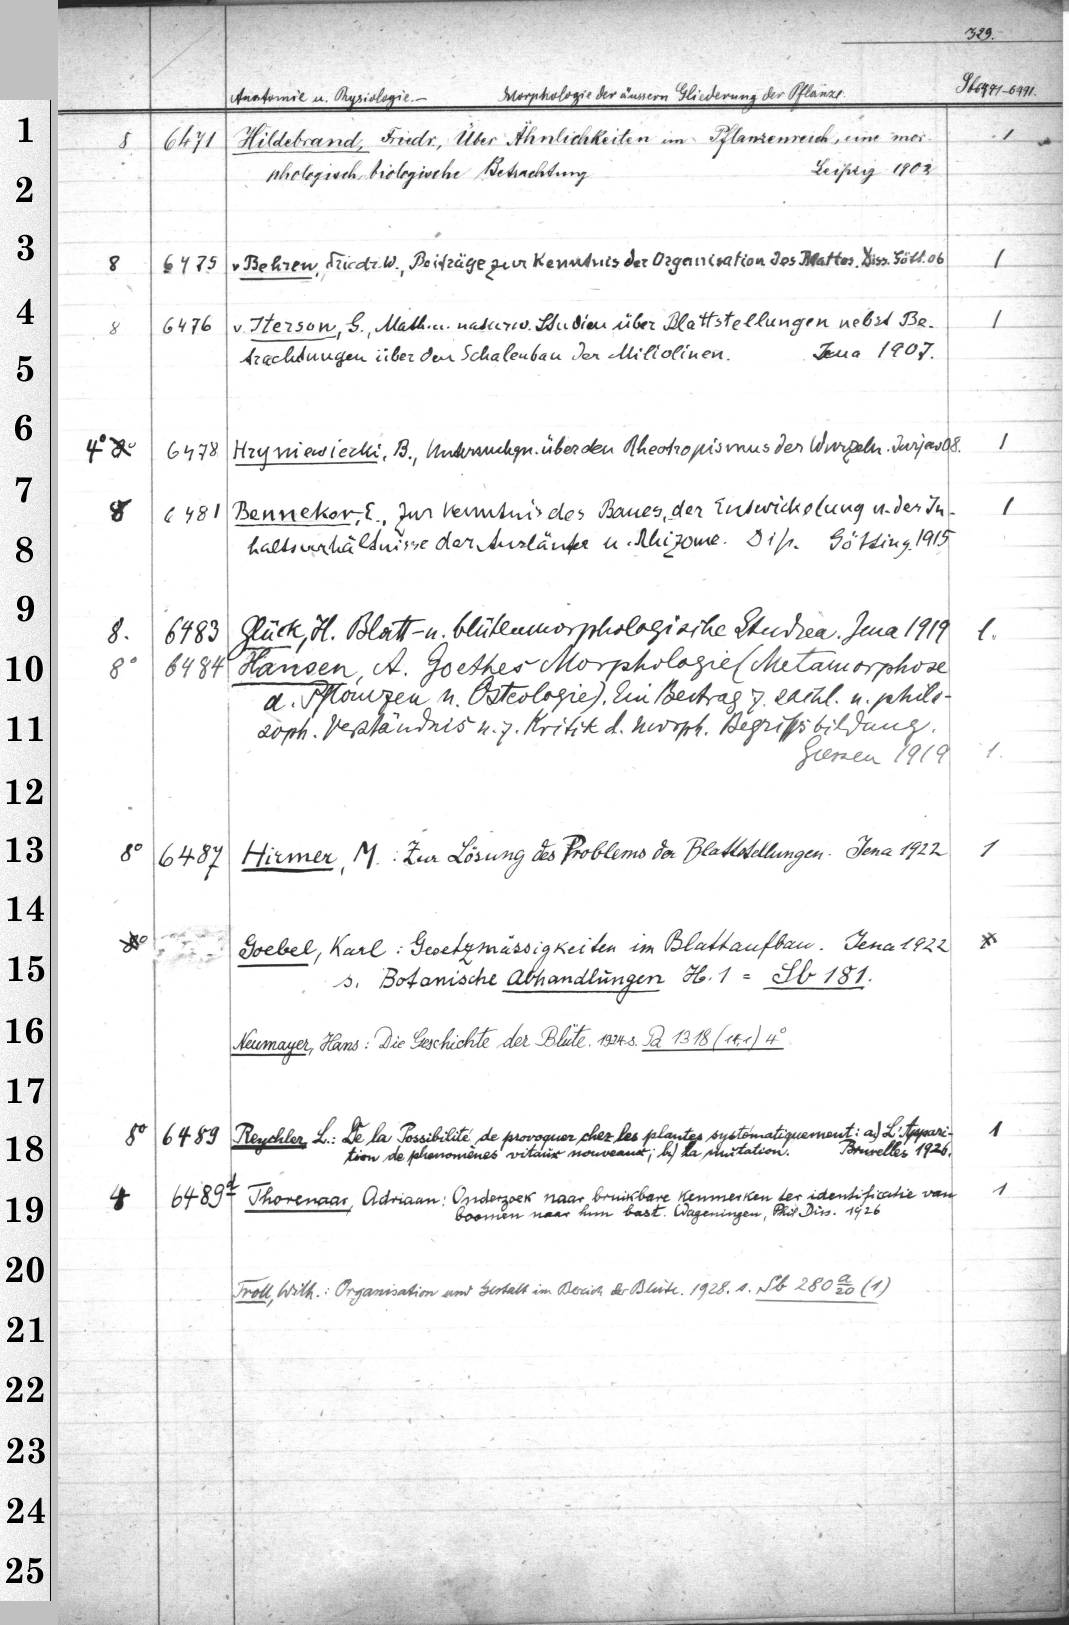 329.
Anatomie u. Physiologie.— Morphologie der äussern Gliederung der Pflanze. Sb 6471-6491.
1 8 6471 Hildebrand, Friedr., Über Ähnlichkeiten im Pflanzenreich, eine mor- 1
2 phologisch biologische Betrachtung Leipzig 1902
3 8 6475 v Behren, Friedr. W., Beiträge zur Kenntnis der Organisation des Blattes. Diss. Gött. 06 1
4 8 6476 v. Iterson, G., Math. u. naturw. Studien über Blattstellungen nebst Be- 1
5 trachtungen über den Schalenbau der Miliolinen. Jena 1907.
6 4° 8° 6478 Hryniewiecki, B., Untersuchgn. über den Rheotropismus der Wurzeln. Jurjew 08. 1
7 8 6481 Benneker, E., Zur Kenntnis des Baues, der Entwickelung u. der In- 1
8 haltsverhältnisse der Ausläufer u. Rhizome. Diss. Götting. 1915
9 8. 6483 Glück, H. Blatt- u. blütenmorphologische Studien. Jena 1919 1.
10 8° 6484 Hansen, A. Goethes Morphologie (Metamorphose
d. Pflanzen u. Osteologie). Ein Beitrag z. sachl. u. philo-
11 soph. Verständnis u. z. Kritik d. morph. Begriffsbildung.
Giessen 1919 1.
12
13 8° 6487 Hirmer, M.: Zur Lösung des Problems der Blattstellungen. Jena 1922 1
14
8° Goebel, Karl: Gesetzmässigkeiten im Blattaufbau. Jena 1922
15 s. Botanische Abhandlungen H. 1 = Sb 181.
16 Neumayer, Hans: Die Geschichte der Blüte. 1924 s. Pd 1318 (14,1) 4°
17
8° 6489 Reychler, L.: De la Possibilité de provoquer chez les plantes systématiquement: a) L'Appari- 1
18 tion de phenomènes vitaux nouveaux; b) la mutation. Bruxelles 1926.
4 6489d Thorenaar, Adriaan: Onderzoek naar bruikbare kenmerken ter identificatie van 1
19 boomen naar hun bast. Wageningen, Phil Diss. 1926
20 Troll, Wilh.: Organisation und Gestalt im Bereich der Blüte. 1928. s. Sb 280 a/20 (1)
21
22
23
24
25